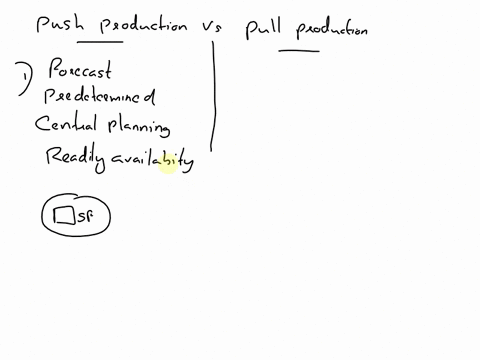 Push production Vs Pull production
1) Forecast
Predetermined
Central planning
Readily availabity
SF